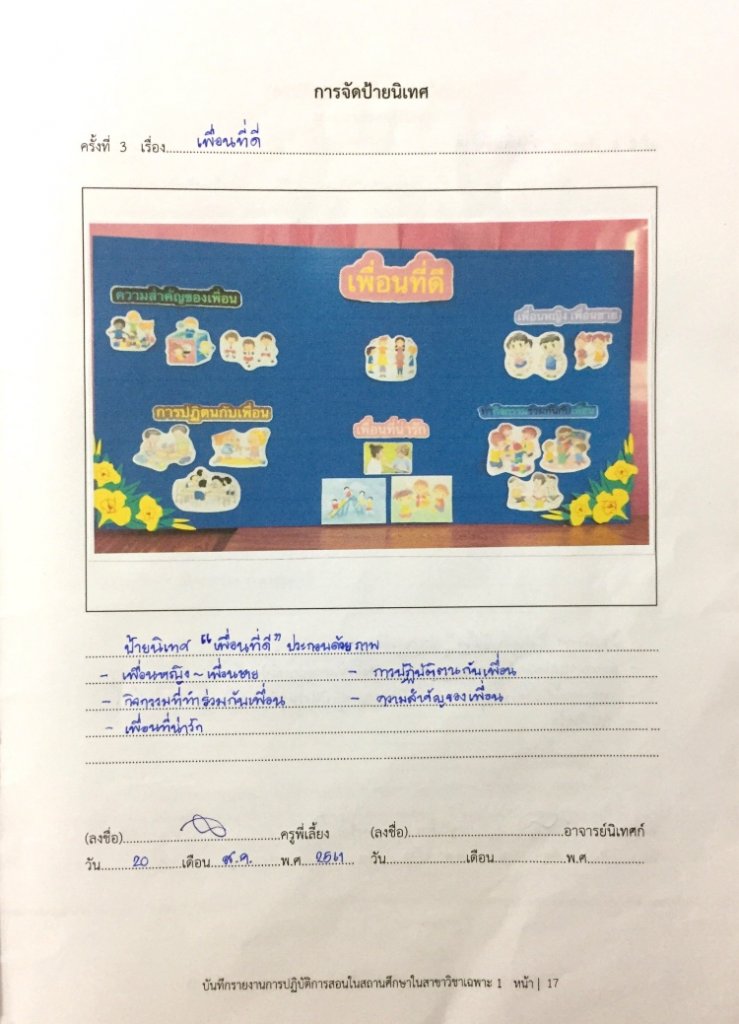 การจัดป้ายนิเทศ
ครั้งที่ 3 เรื่อง เพื่อนที่ดี
เพื่อนที่ดี
ความสำคัญของเพื่อน
เพื่อนหญิง เพื่อนชาย
การปฏิตนกับเพื่อน
เพื่อนที่น่ารัก
ร่วมกันกับเพื่อน
ป้ายนิเทศ "เพื่อนที่ดี" ประกอบด้วยภาพ
- เพื่อนหญิง ~ เพื่อนชาย - การปฏิบัติตนกับเพื่อน
- กิจกรรมที่ทำร่วมกับเพื่อน - ความสำคัญของเพื่อน
- เพื่อนที่น่ารัก
(ลงชื่อ) ครูพี่เลี้ยง (ลงชื่อ) อาจารย์นิเทศก์
วัน 20 เดือน ส.ค. พ.ศ. 2561 วัน เดือน พ.ศ.
บันทึกรายงานการปฏิบัติการสอนในสถานศึกษาในสาขาวิชาเฉพาะ 1 หน้า | 17